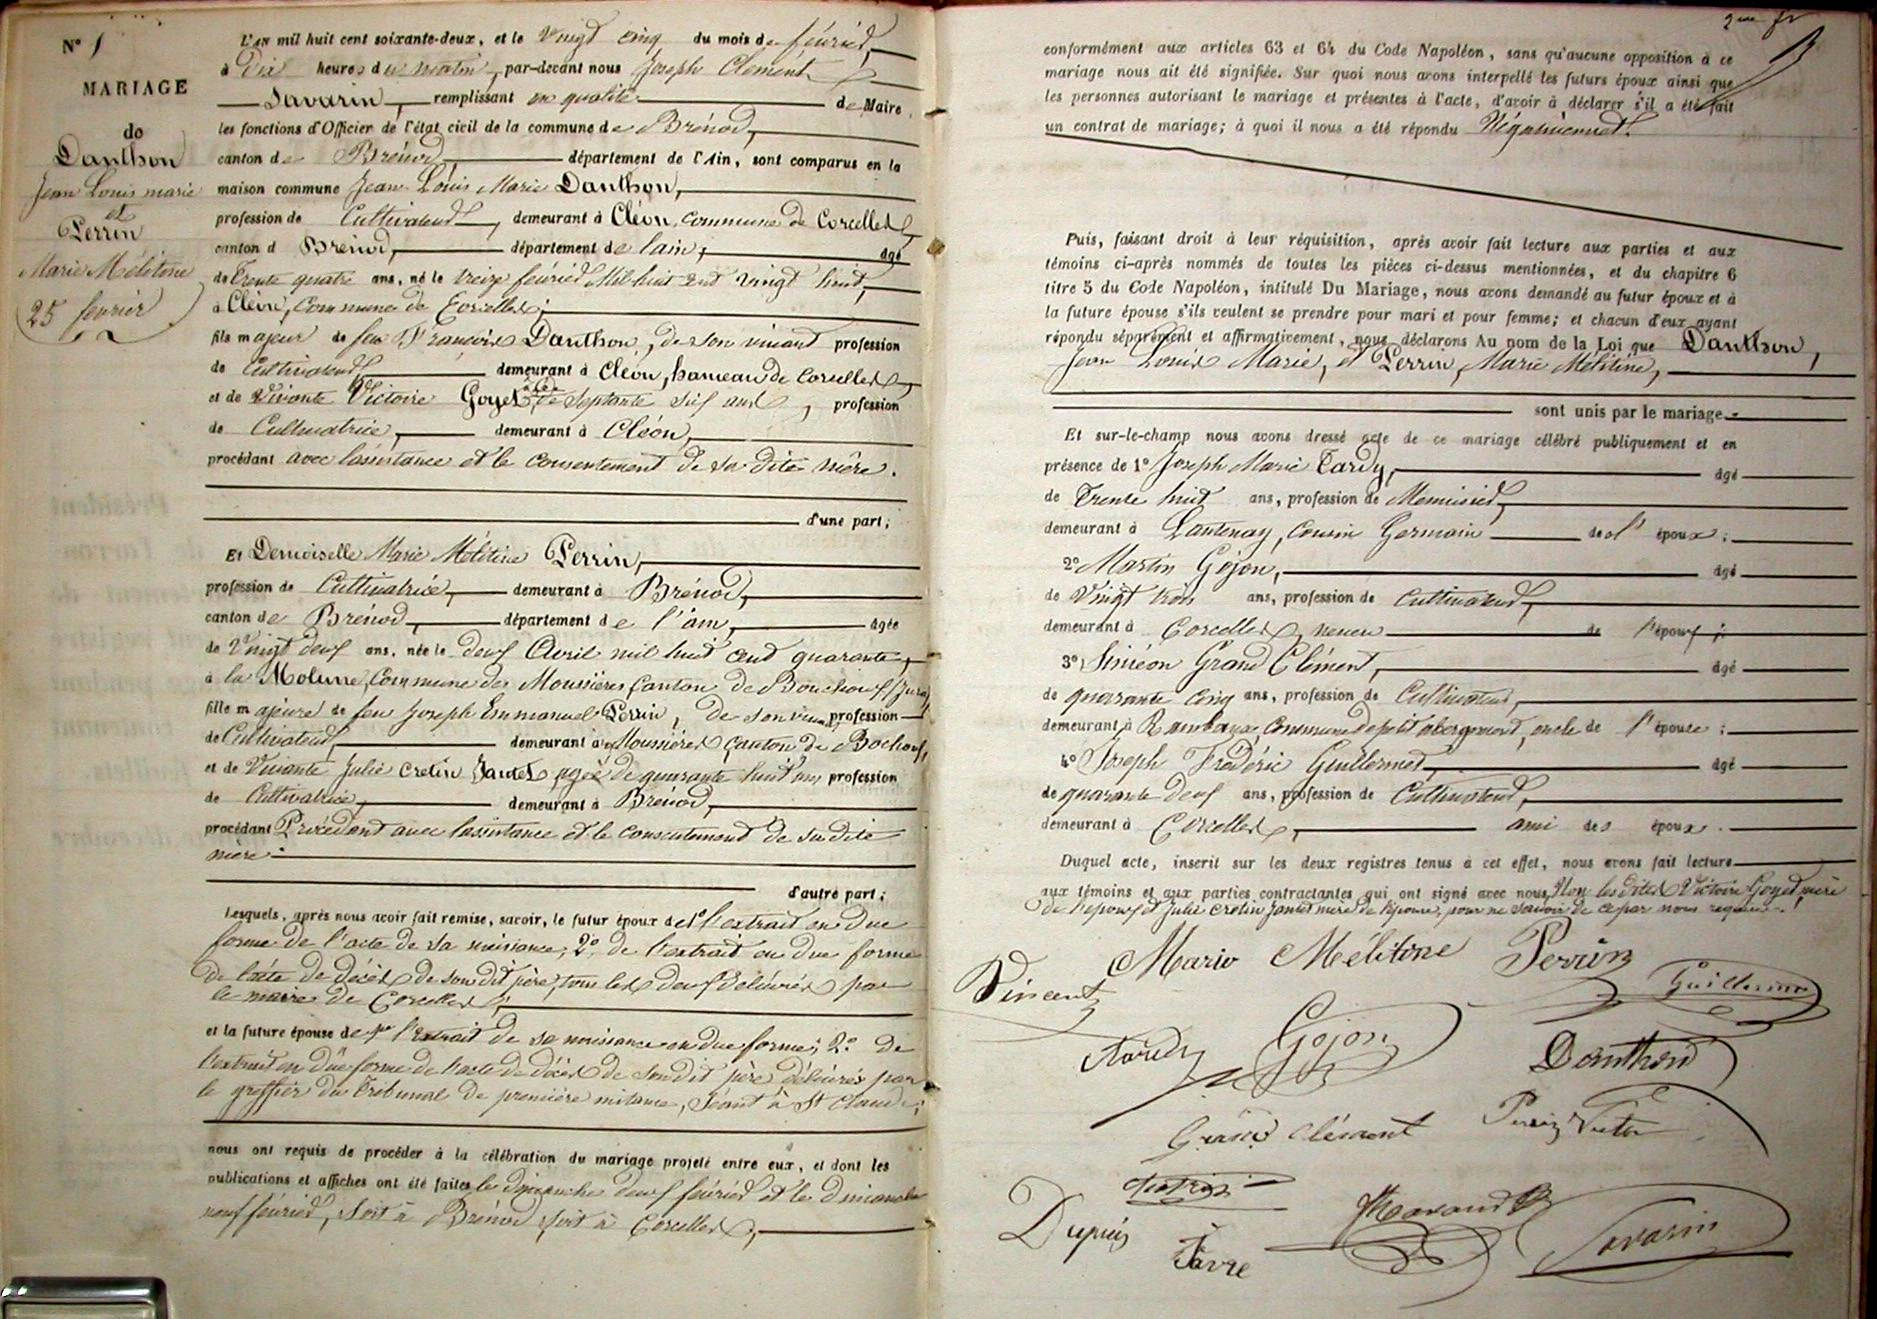 N° 1
MARIAGE
de
Danthon
Jean Louis marie
et
Perrin
Marie Mélitine
25 février
L'AN mil huit cent soixante-deux, et le vingt cinq du mois de février,
à Dix heures du matin, par-devant nous Joseph Clément
Savarin, remplissant en qualité de Maire
les fonctions d'Officier de l'état civil de la commune de Brénod,
canton de Brénod, département de l'Ain, sont comparus en la
maison commune Jean Louis Marie Danthon,
profession de Cultivateur, demeurant à Cléon, commune de Corcelles,
canton d Brénod, département de l'ain, âgé
de Trente quatre ans, né le treize février Mil huit cent vingt huit,
à Cléon, Commune de Corcelles;
fils majeur de feu François Danthon, de son vivant profession
de Cultivateur, demeurant à Cléon, hameau de Corcelles,
et de Vivante Victoire Goyet âgée de septante six ans, profession
de Cultivatrice, demeurant à Cléon,
procédant avec l'assistance et le consentement de sa dite mère.
d'une part;
Et Demoiselle Marie Mélitine Perrin,
profession de Cultivatrice, demeurant à Brénod,
canton de Brénod, département de l'ain, âgée
de Vingt deux ans, née le deux Avril mil huit cent quarante,
à la Molune, Commune des Moussières, Canton de Bouchoux (Jura)
fille majeure de feu Joseph Emmanuel Perrin, de son vivant profession
de Cultivateur, demeurant à Moussières Canton de Bochoux,
et de Vivante Julie Cretin Jantet, agée de quarante huit ans profession
de Cultivatrice, demeurant à Brénod,
procédant Procédant avec l'assistance et le consentement de sa dite
mère.
d'autre part;
Lesquels, après nous avoir fait remise, savoir, le futur époux de 1° l'extrait en due
forme de l'acte de sa naissance, 2° de l'extrait en due forme
de l'acte de décès de son dit père, tous les deux délivrés par
le maire de Corcelles;
et la future épouse de 1° l'Extrait de sa naissance en due forme; 2° de
l'extrait en due forme de l'acte de décès de son dit père délivrés par
le greffier du Tribunal de première instance, séant à St Claude;
nous ont requis de procéder à la célébration du mariage projeté entre eux, et dont les
publications et affiches ont été faites le dimanche deux février et le dimanche
neuf février, soit à Brénod, soit à Corcelles;
conformément aux articles 63 et 64 du Code Napoléon, sans qu'aucune opposition à ce
mariage nous ait été signifiée. Sur quoi nous avons interpellé les futurs époux ainsi que
les personnes autorisant le mariage et présentes à l'acte, d'avoir à déclarer s'il a été fait
un contrat de mariage; à quoi il nous a été répondu Négativement.
Puis, faisant droit à leur réquisition, après avoir fait lecture aux parties et aux
témoins ci-après nommés de toutes les pièces ci-dessus mentionnées, et du chapitre 6
titre 5 du Code Napoléon, intitulé Du Mariage, nous avons demandé au futur époux et à
la future épouse s'ils veulent se prendre pour mari et pour femme; et chacun d'eux ayant
répondu séparément et affirmativement, nous déclarons Au nom de la Loi que Danthon,
Jean Louis Marie, et Perrin, Marie Mélitine,
sont unis par le mariage.
Et sur-le-champ nous avons dressé acte de ce mariage célébré publiquement et en
présence de 1° Joseph Marie Tardy, âgé
de Trente huit ans, profession de Menuisier,
demeurant à Lantenay, Cousin Germain de l' époux;
2° Martin Gojon, âgé
de Vingt trois ans, profession de Cultivateur,
demeurant à Corcelles, neveu de l'époux;
3° Siméon Grand Clément, âgé
de quarante cinq ans, profession de Cultivateur,
demeurant à Rambaye, Commune de petit abergement, oncle de l'épouse;
4° Joseph Frédéric Guillermet, âgé
de quarante deux ans, profession de Cultivateur,
demeurant à Corcelles, ami des époux.
Duquel acte, inscrit sur les deux registres tenus à cet effet, nous avons fait lecture
aux témoins et aux parties contractantes qui ont signé avec nous, Non les dites Victoire Goyet, mère
de l'époux et Julie Cretin Jantet mère de l'épouse, pour ne savoir de ce par nous requises.
Marie Mélitine Perrin
Vincent Guillermet
Tardy Gojon Danthon
Grand Clément Perrin Victor
Dupuis Favre Savarin